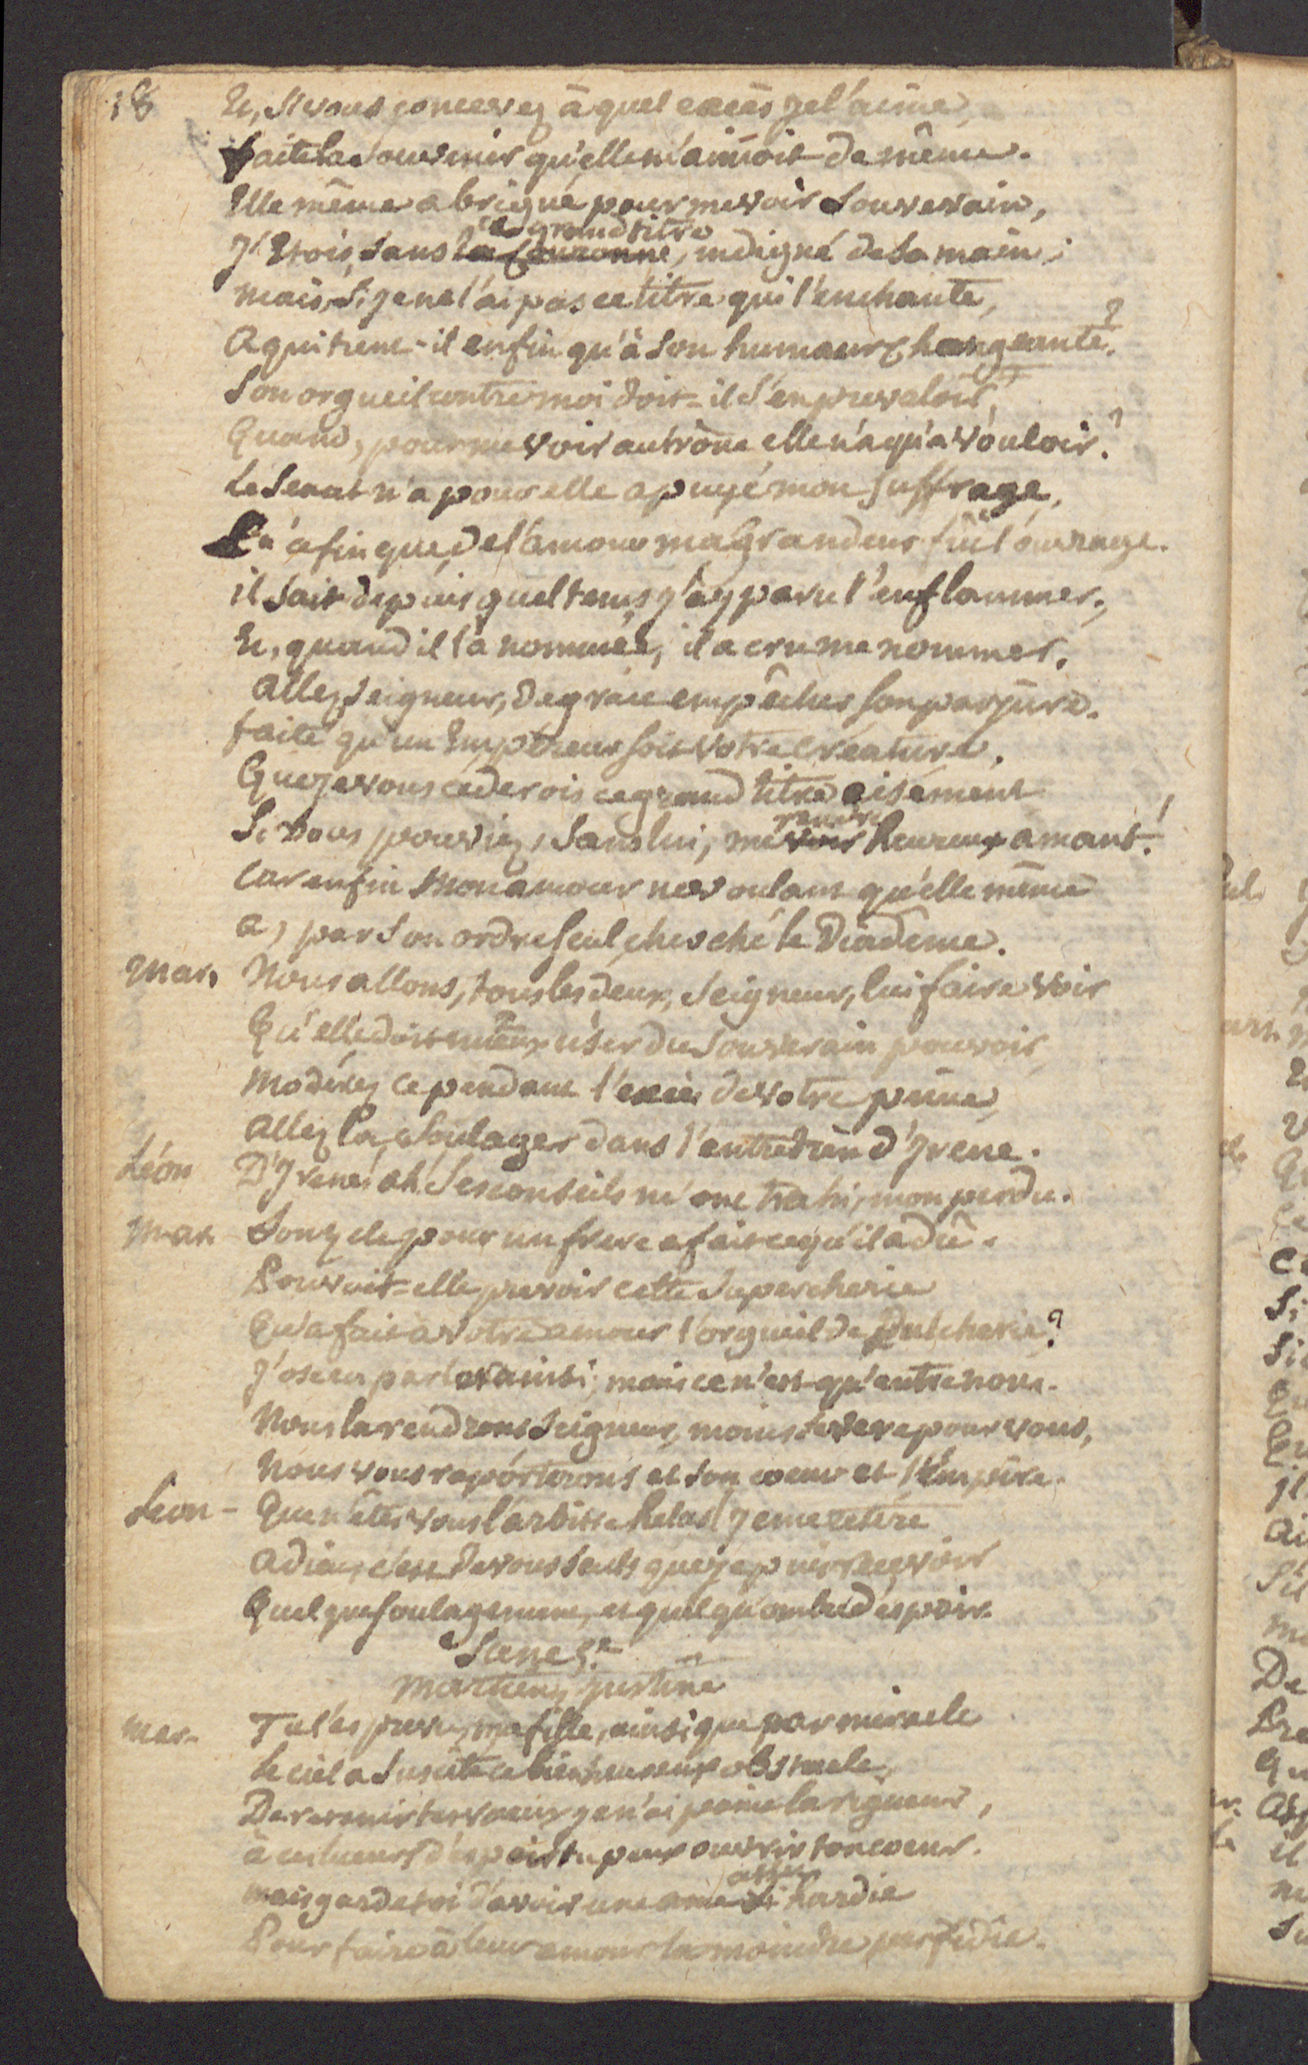 18
Et, si vous concevez à quel excès je l'aime,
faite la souvenir qu'elle m'aimoit de même.
Elle même a brigué pour me voir souverain,
J'étois, sans la couronne, indigne de sa main;
ce grand titre
mais, si je ne l'ai pas ce titre qui l'enchante,
A qui tient-il enfin qu'à son humeur changeante?
Son orgueil contre moi doit-il s'en prevaloir,
Quand, pour me voir au trône elle n'a qu'à vouloir?
Le Senat n'a pour elle apuyé mon suffrage,
Qu'afin que de l'amour ma grandeur fût l'ouvrage.
il sait depuis quel tems j'ay paru l'enflammer;
Et, quand il l'a nommée, il a cru me nommer.
Allez, Seigneur, de grace empêcher son parjure.
faite qu'un Empereur soit votre Créature.
Que je vous cederois ce grand titre aisément
Si vous pouviez, sans lui, me voir heureux amant!
rendre
Car enfin mon amour ne voulant qu'elle même
a, par son ordre seul, cherché le Diadème.
Mar. Nous allons, tous les deux, Seigneur, lui faire voir
Qu'elle doit mieux user du souverain pouvoir,
Modérez cependant l'excès de votre peine,
Allez la soulager dans l'entretien d'Irene.
Léon D'Irene! ah! ses conseils m'ont trahi, m'on perdu.
Mar. Son zele pour un frere a fait ce qu'il a dû.
Pouvoit-elle prevoir cette supercherie
Qu'a fait à votre amour l'orgueil de Pulcherie?
J'ose en parler ainsi, mais ce n'est qu'entre nous.
Nous la rendrons, Seigneur, moins severe pour vous,
Nous vous raporterons et son coeur et l'Empire.
Leon - Que n'êtes vous l'arbitre helas! je me retire
Adieu, c'est de vous seuls que je puis recevoir
Quelque soulagement, et quelqu'ombre d'espoir.
Scene 5e
Martien, Justine
Mar. Tu l'as prevu, ma fille, ainsi que par miracle
Le ciel a suscité ce bienheureux obstacle,
De retenir tes voeux je n'ai point la rigueur,
à ces lueurs d'espoir tu peux ouvrir ton coeur.
mais garde toi d'avoir une ame si hardie
assez
Pour faire à leur amour la moindre perfidie.